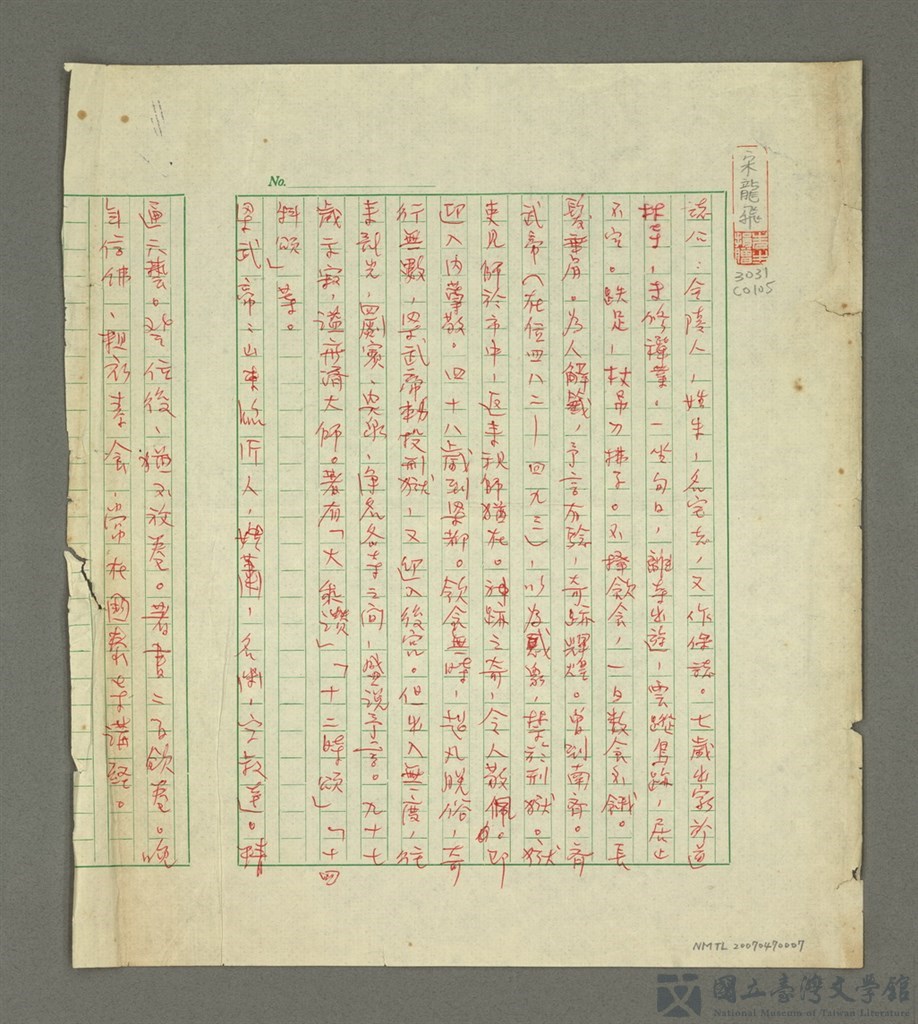 宋龍飛
3031
C0105
No.
誌公：金陵人，姓朱，名宝志，又作保誌。七歲出家於道
林寺，專修禪業。一坐旬日，離寺出遊，雲蹤鳥跡，居止
不定。跣足，杖吊刀拂子。不擇飲食，一日數食不餓。長
髮垂肩。为人解籤，予言有驗，奇跡輝煌。曾到南齊。齊
武帝（在位四八二—四九三），以为惑眾，禁於刑獄。獄
吏見師於市中，返來視師猶在。神跡之奇，令人敬佩。即
迎入内苑敬。四十八歲到梁都。飲食無時，超凡脫俗，奇
行無數，梁武帝勅投刑獄，又迎入後宮。但出入無度，往
來龍光，罽賓、興泉，淨名各寺之间，盛说予言。九十七
歲示寂，謚齊濟大師。著有「大乘讚」「十二時頌」「十四
科頌」等。
梁武帝：山東臨沂人，姓蕭，名衍，字叔達。精
通六藝。登位後，猶不放卷。著書二百飲卷。晚
年信佛，粗衣素食，常在國泰寺講經。
NMTL 20070470007
國立臺灣文學館
National Museum of Taiwan Literature